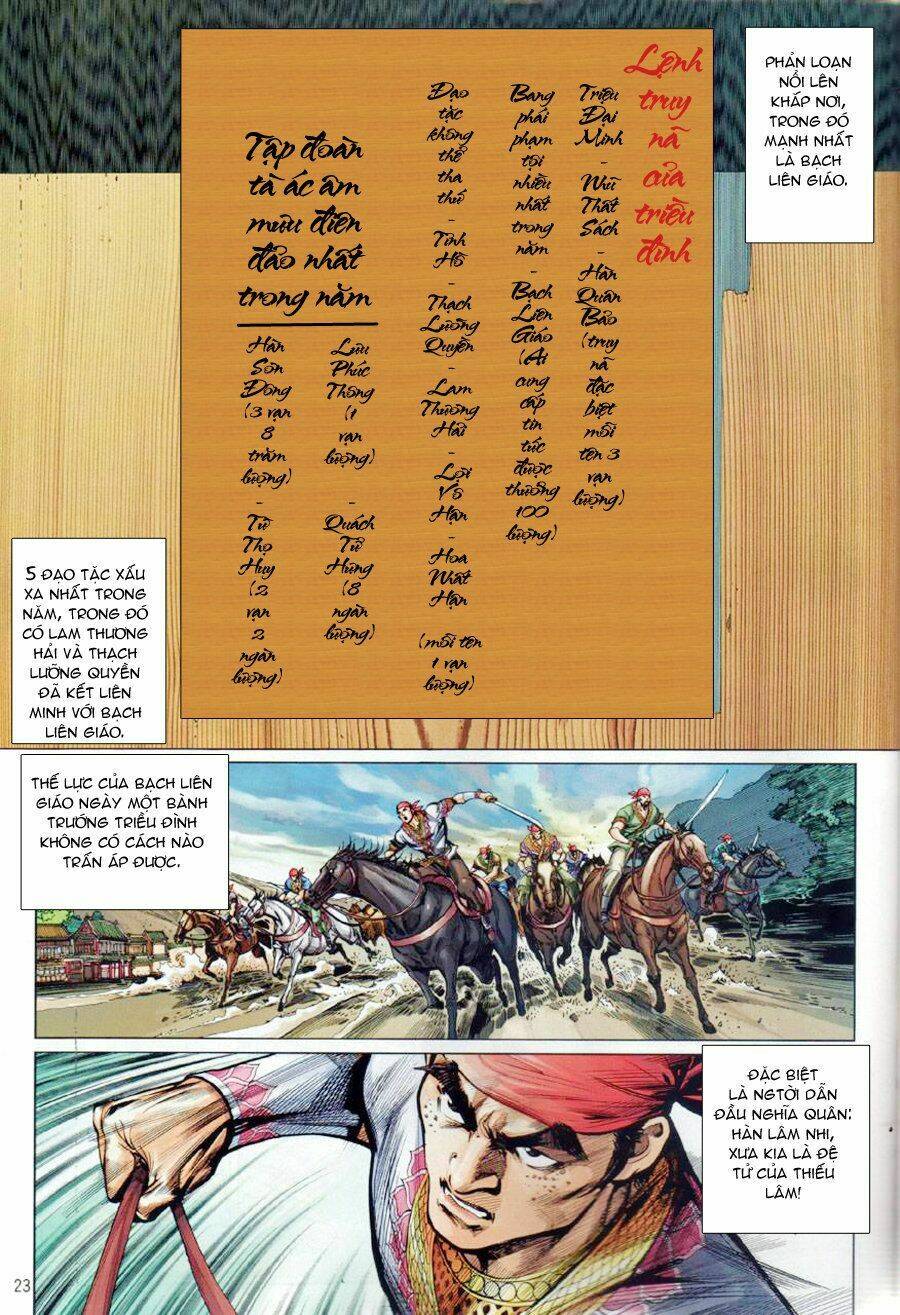 PHẢN LOẠN
NỔI LÊN
KHẮP NƠI,
TRONG ĐÓ
MẠNH NHẤT
LÀ BẠCH
LIÊN GIÁO.
Lệnh
truy
nã
của
triều
đình
Triệu
Đại
Minh
-
Nhũ
Thất
Sách
-
Hàn
Quân
Bảo
(truy
nã
đặc
biệt
mỗi
tên 3
vạn
lượng)
Bang
phái
phạm
tội
nhiều
nhất
trong
năm
-
Bạch
Liên
Giáo
(Ai
cung
cấp
tin
tức
được
thưởng
100
lượng)
Đạo
tặc
không
thể
tha
thứ
-
Tinh
Hồ
-
Thạch
Lưỡng
Quyền
-
Lam
Thương
Hải
-
Lợi
Vô
Hạn
-
Hoa
Nhất
Hạn
(mỗi tên
1 vạn
lượng)
Tập đoàn
tà ác âm
mưu điên
đảo nhất
trong năm
Lưu
Phúc
Thông
(1
vạn
lượng)
-
Quách
Tử
Hưng
(8
ngàn
lượng)
Hàn
Sơn
Đồng
(3 vạn
8
trăm
lượng)
-
Từ
Thọ
Huy
(2
vạn
2
ngàn
lượng)
5 ĐẠO TẶC XẤU
XA NHẤT TRONG
NĂM, TRONG ĐÓ
CÓ LAM THƯƠNG
HẢI VÀ THẠCH
LƯỠNG QUYỀN
ĐÃ KẾT LIÊN
MINH VỚI BẠCH
LIÊN GIÁO.
THẾ LỰC CỦA BẠCH LIÊN
GIÁO NGÀY MỘT BÀNH
TRƯỚNG TRIỀU ĐÌNH
KHÔNG CÓ CÁCH NÀO
TRẤN ÁP ĐƯỢC.
ĐẶC BIỆT
LÀ NGTỜI DẪN
ĐẦU NGHĨA QUÂN:
HÀN LÂM NHI,
XƯA KIA LÀ ĐỆ
TỬ CỦA THIẾU
LÂM!
23